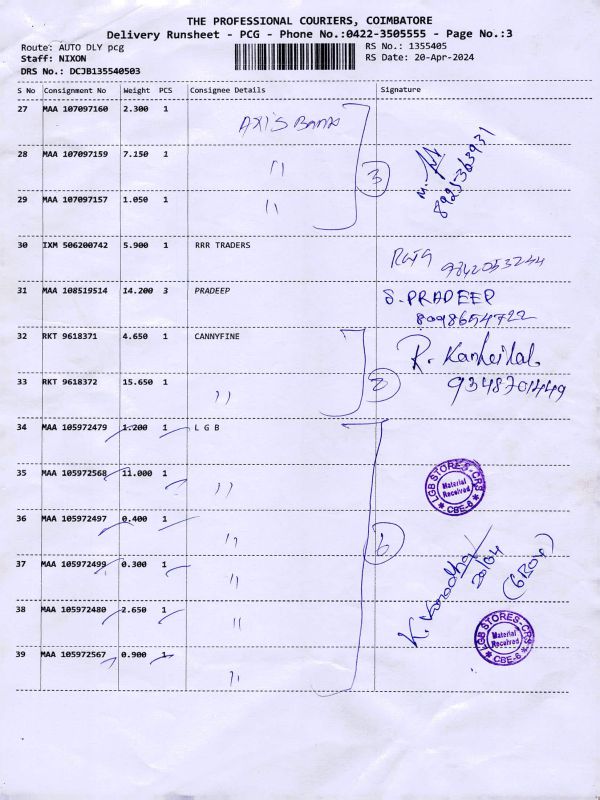 THE PROFESSIONAL COURIERS, COIMBATORE
Delivery Runsheet - PCG - Phone No.:0422-3505555 - Page No.:3
Route: AUTO DLY pcg RS No.: 1355405
Staff: NIXON RS Date: 20-Apr-2024
DRS No.: DCJB135540503
S No Consignment No Weight PCS Consignee Details Signature
27 MAA 107097160 2.300 1 AXIS BANK
28 MAA 107097159 7.150 1 〃 3 8925363931
29 MAA 107097157 1.050 1 〃
30 IXM 506200742 5.900 1 RRR TRADERS 9842053244
31 MAA 108519514 14.200 3 PRADEEP S. PRADEEP
8098654722
32 RKT 9618371 4.650 1 CANNYFINE
33 RKT 9618372 15.650 1 〃 2 9348701449
34 MAA 105972479 1.200 1 L G B
35 MAA 105972568 11.000 1 〃 LGB STORES-CRS Material Received CBE-6
36 MAA 105972497 0.400 1 〃 6
37 MAA 105972499 0.300 1 〃 20/04 (6 Box)
38 MAA 105972480 2.650 1 〃 LGB STORES-CRS Material Received CBE-6
39 MAA 105972567 0.900 1 〃